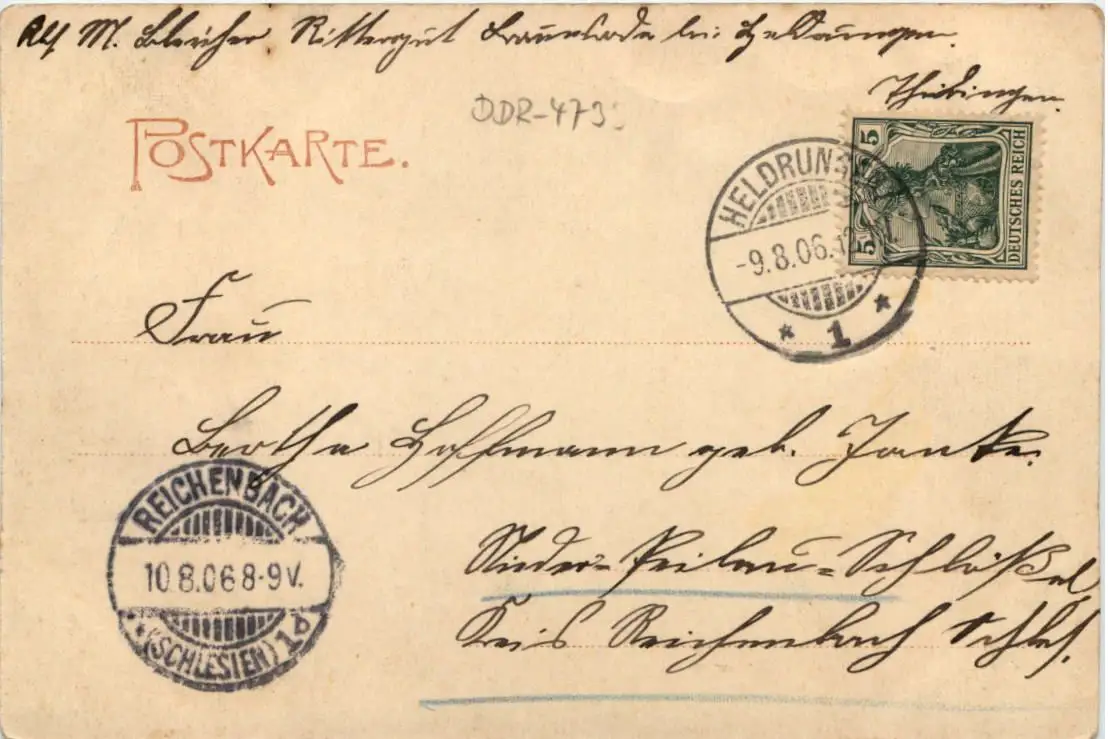 M. Bleicher Rittergut Braunsroda bei Heldrungen.
Thüringen.
DDR-473
POSTKARTE.
HELDRUNGEN
-9.8.06.12
* 1 *
5 5
DEUTSCHES REICH
Frau
Bertha Hoffmann geb. Janke.
Nieder-Peilau-Schlößel
Kreis Reichenbach Schles.
REICHENBACH
10.8.06 8-9V.
(SCHLESIEN) 1d